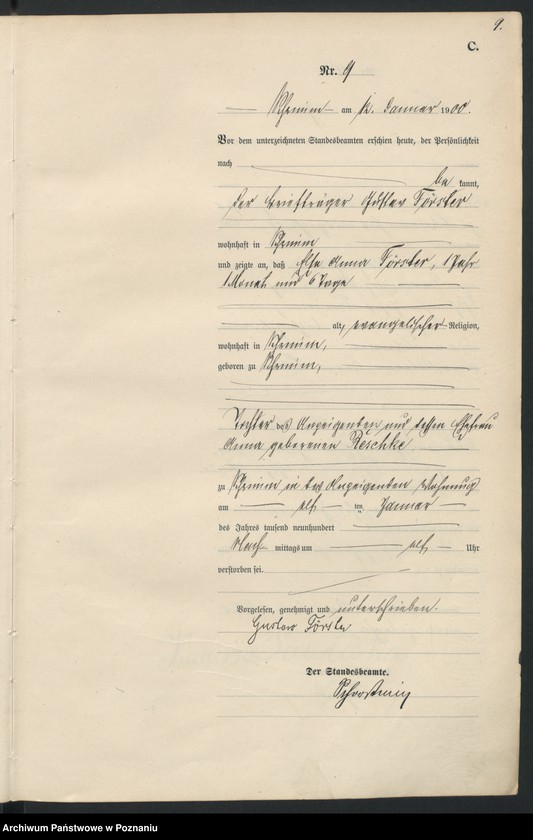 9.
C.
Nr. 9
Schrimm am 12. Januar 1900.
Vor dem unterzeichneten Standesbeamten erschien heute, der Persönlichkeit
nach
bekannt,
der Briefträger Gustav Förster
wohnhaft in Schrimm
und zeigte an, daß Elsa Anna Förster, 1 Jahr
1 Monat und 6 Tage
alt, evangelischer Religion,
wohnhaft in Schrimm,
geboren zu Schrimm,
Tochter des Anzeigenden und dessen Ehefrau
Anna geborenen Reschke
zu Schrimm in des Anzeigenden Wohnung
am elf ten Januar
des Jahres tausend neunhundert
Nach mittags um elf Uhr
verstorben sei.
Vorgelesen, genehmigt und unterschrieben.
Gustav Förster
Der Standesbeamte.
Archiwum Państwowe w Poznaniu